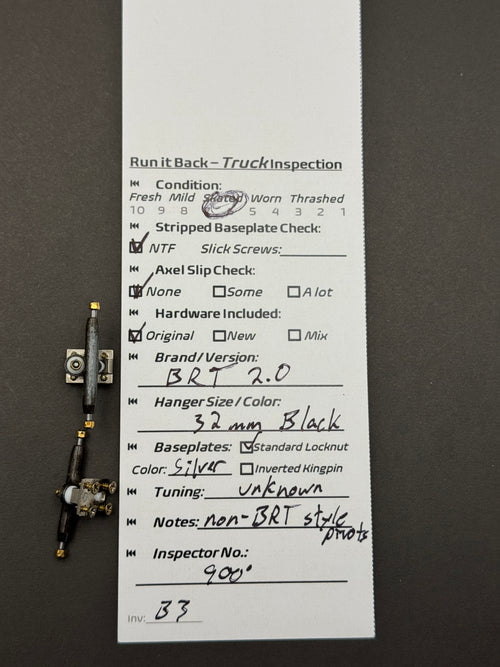 Run it Back – Truck Inspection
Condition:
Fresh Mild Skated Worn Thrashed
10 9 8 5 4 3 2 1
Stripped Baseplate Check:
NTF Slick Screws:
Axel Slip Check:
None Some A lot
Hardware Included:
Original New Mix
Brand/Version:
BRT 2.0
Hanger Size/Color:
32 mm Black
Baseplates: Standard Locknut
Color: Silver Inverted Kingpin
Tuning: unknown
Notes: non-BRT style
pivots
Inspector No.:
900°
Inv: B3